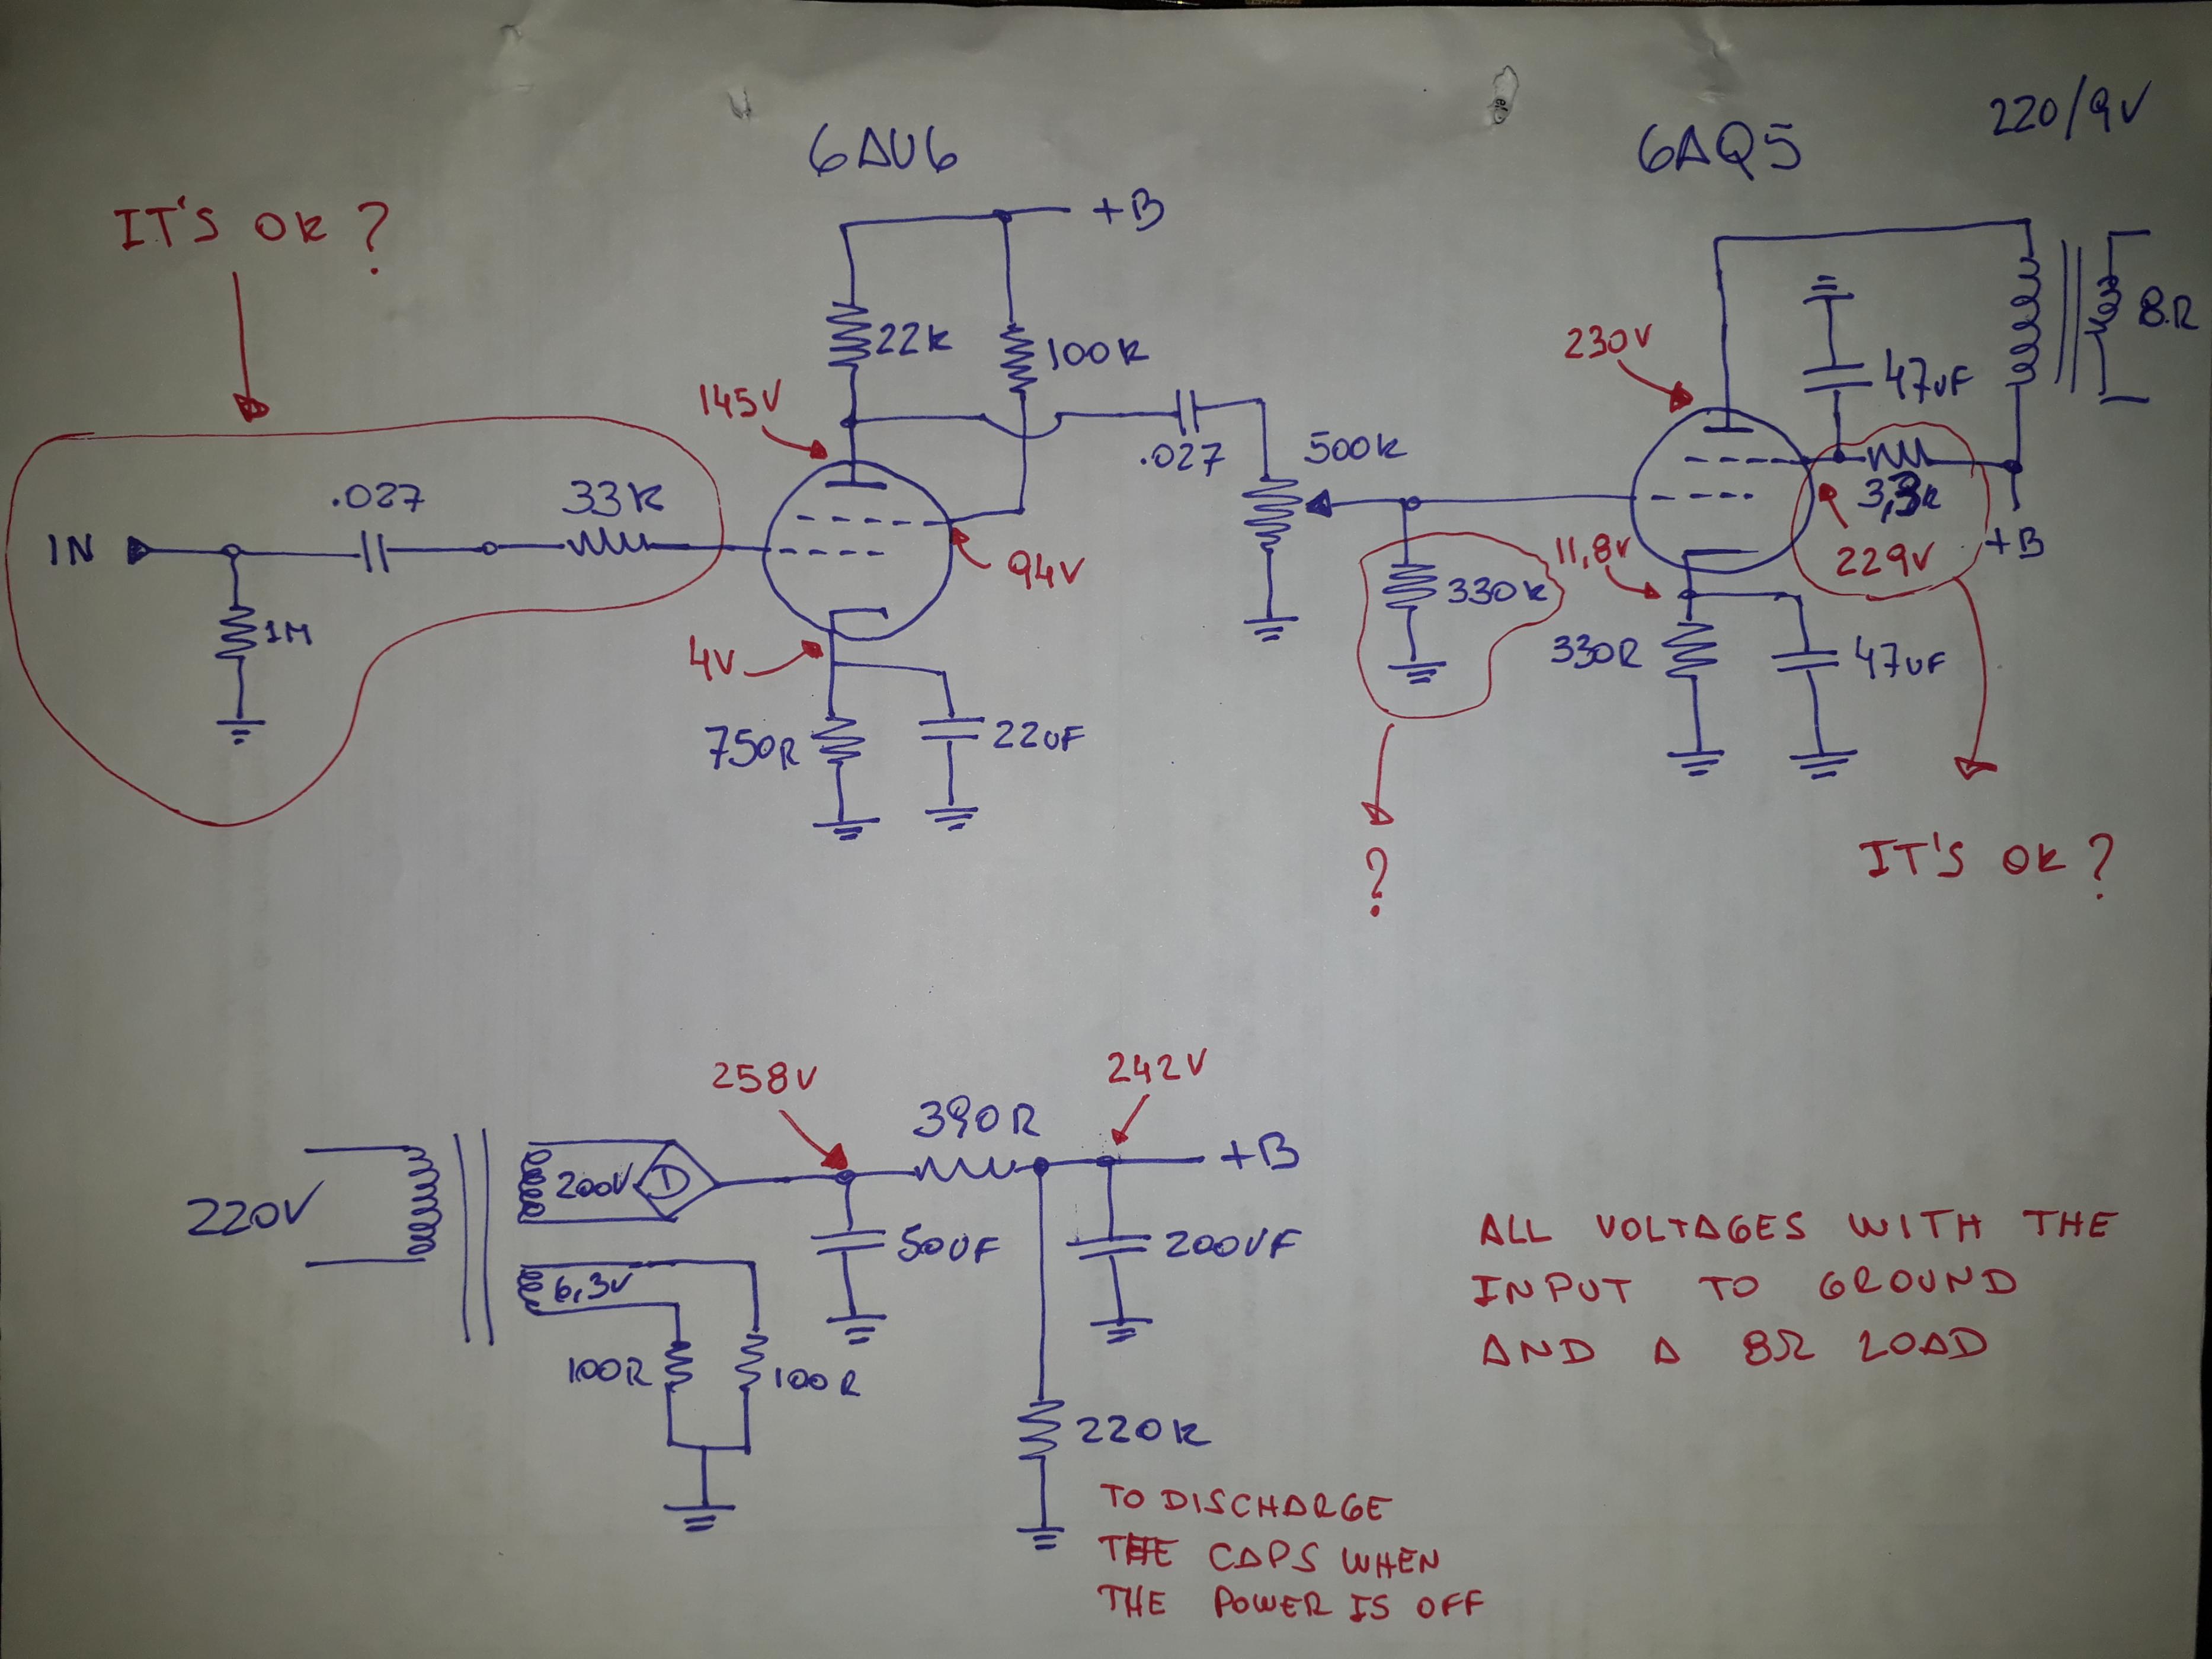 6AU6
6AQ5
220/9V
IT'S OK ?
+B
22K
100K
145V
.027
500K
230V
47uF
8R
3,3K
229V
+B
IN
.027
33K
1M
94V
4V
750R
22uF
330K
11,8V
330R
47uF
?
IT'S OK ?
258V
242V
390R
+B
220V
200V
50uF
200uF
6,3V
100R
100R
220K
TO DISCHARGE
THE CAPS WHEN
THE POWER IS OFF
ALL VOLTAGES WITH THE
INPUT TO GROUND
AND A 8Ω LOAD